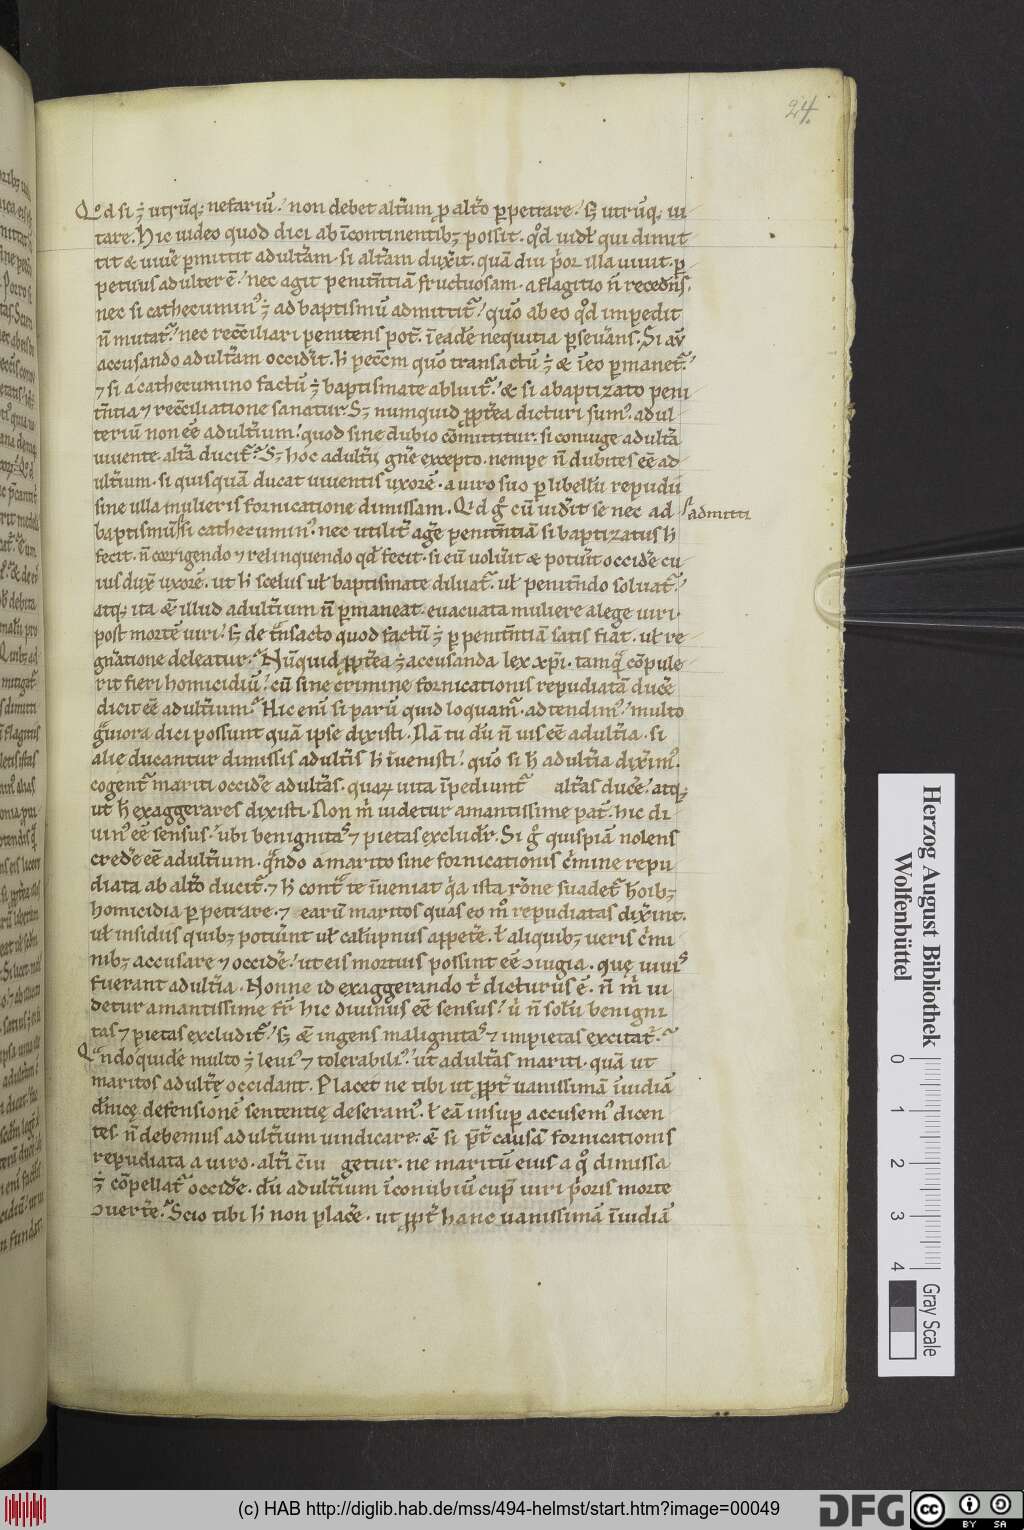 24.
Qđ si ÷ utrūq; nefariū. non debet altūm ꝓ alto ꝑpetrare. s; utrūq; ui
tare. Hic uideo quod dici ab īcontinentib; possit. qđ uidl' qui dimit
tit & uiuē ꝑmittit adultām. si altām duxit. quā diu p'or illa uiuit. ꝑ
petuus adulter ē. nec agit penitn̄tiā fructuosam. a flagitio n̄ recedn̄s.
nec si cathecumin' ÷ ad baptismū admittit'. quō ab eo qđ impedit
n̄ mutat'. nec recc̄iliari penitens pot'. ī eadē nequitia ꝑseuāns. Si aū
accusando adultām occid'it. h̄ pecc̄m quō transactū ÷ & ī eo ꝑmanet'.
⁊ si a cathecumino factū ÷ baptismate abluit'. & si a baptizato peni
tn̄tia ⁊ recc̄iliatione sanatur. S; numquid ꝓpt'ea dicturi sum'. adul
teriū non eē adult'ium. quod sine dubio cōmittitur. si coniuge adult'a
uiuente alt'a ducit'. S; hoc adult'ij gn̄e excepto. nempe n̄ dubites eē ad
ult'ium. si quisquā ducat uiuentis uxorē. a uiro suo ꝑ libellū repudii
sine ulla mulieris fornicatione dimissam. Qid g° cū uid'it se nec ad
admitti
baptismū si cathecumin'. nec utilit' ag'e penitn̄tiā si baptizatus h̄
fecit. n̄ corrigendo ⁊ relinquendo qđ fecit. si eū uolu'it & potu'it occid'e cu
ius dux' uxorē. ut h̄ scelus ul' baptismate diluat'. ul' penitn̄do soluat'.
atq; ita & illud adult'ium n̄ ꝑmaneat. euacuata muliere a lege uiri.
post mortē uiri. s; de t'nsacto quod factū ÷ ꝑ penitn̄tiā satis fiat. ul' re
gn̄atione deleatur. Nūquid ꝓpt'ea ÷ accusanda lex xp̄i. tamq' cōpule
rit fieri homicidiū. cū sine crimine fornicationis repudiatā duc'e
dicit eē adult'ium. Hic enī si parū quid loquam'. adtendim'. multo
g'uiora dici possunt quā ipse dixisti. Nā tu dū n̄ uis eē adult'ia. si
alię ducantur dimissis adult'is h̄ īuenisti. quō si h̄ adult'ia dix'im'.
cogent' mariti occid'e adult'as. quaꝝ uita īpediunt' alt'as duc'e. atq;
ut h̄ exaggerares dixisti. Non m̄ uidetur amantissime pat'. hic di
uin' eē sensus. ubi benignitas ⁊ pietas excludit'. Si g° quispiā nolens
cred'e eē adult'ium. q'ndo a marito sine fornicationis c'mine repu
diata ab alt'o ducit'. ⁊ h̄ cont' te īueniat q'a ista rōne suadet' hoib;
homicidia ꝑpetrare. ⁊ earū maritos quas eo m° repudiatas dix'int.
ul' insidiis quib; potu'int ul' calūpnus appet'e. l' aliquib; ueris c'mi
nib; accusare ⁊ occid'e. ut eis mortuis possint eē ꝯiugia. que uiuis
fuerant adult'ia. Nonne id exaggerando t' dicturus ē. n̄ m̄ ui
detur amantissime fr̄ hic diuinus eē sensus. u' n̄ solū benigni
tas ⁊ pietas excludit'. s; & ingens malignitas ⁊ impietas excitat'.
Q'ndoquidē multo ÷ leui' ⁊ tolerabili'. ut adult'as mariti. quā ut
maritos adult'e occidant. Placet ne tibi ut ꝓpt' uanissimā īuidiā
dn̄icę defensionē sententię deseram'. l' eā insuꝑ accusem' dicen
tes n̄ debemus adult'ium uindicare. & si p̄t' causā fornicationis
repudiata a uiro. alt'i c̄iu getur. ne maritū eius a q° dimissa
÷ cōpellat' occid'e. dū adult'ium ī conubiū cup' uiri p'oris morte
ꝯuert'e. Scio tibi h̄ non plac'e. ut ꝓpt' hanc uanissimā īuidiā
Herzog August Bibliothek
Wolfenbüttel
0 1 2 3 4
Gray Scale
(c) HAB http://diglib.hab.de/mss/494-helmst/start.htm?image=00049
DFG
cc BY SA